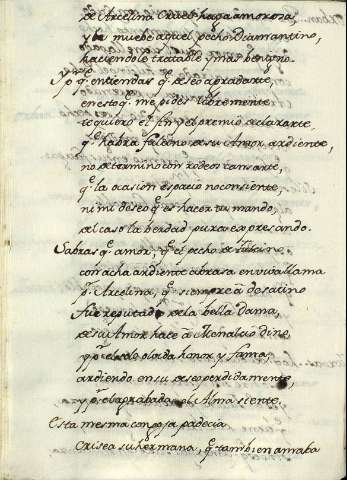 de Arcelina q̃ se haga amorosa,
y se mueba aquel pecho Diamantino,
haciendole tratable y mas benigno.
Y p.q̃ entiendas q̃ deseo agradarte,
en esto q̃ me pides libremente
te quiero el fin y el premio declararte,
q̃ habra Fausino de su Amor ardiente,
no determino con rodeos cansarte,
q̃ la ocasion espacio no consiente,
ni mi deseo q̃ es hacer tu mando,
del caso la berdad pura expresando.
Sabras q̃ amor, q̃ el pecho de
con acha ardiente abrasa en viva llama
p.r Arcelina, q̃ siempre à desatino
Fue reputado de la bella dama,
de su Amor hace à Menalcio dino
y p.r el solo olvida honor y fama,
ardiendo en su deseo perdidamente,
y p.r el abrasada el Alma siente,
Esta mesma congoja padecia
Crisea su hermana, q̃ tambien amaba